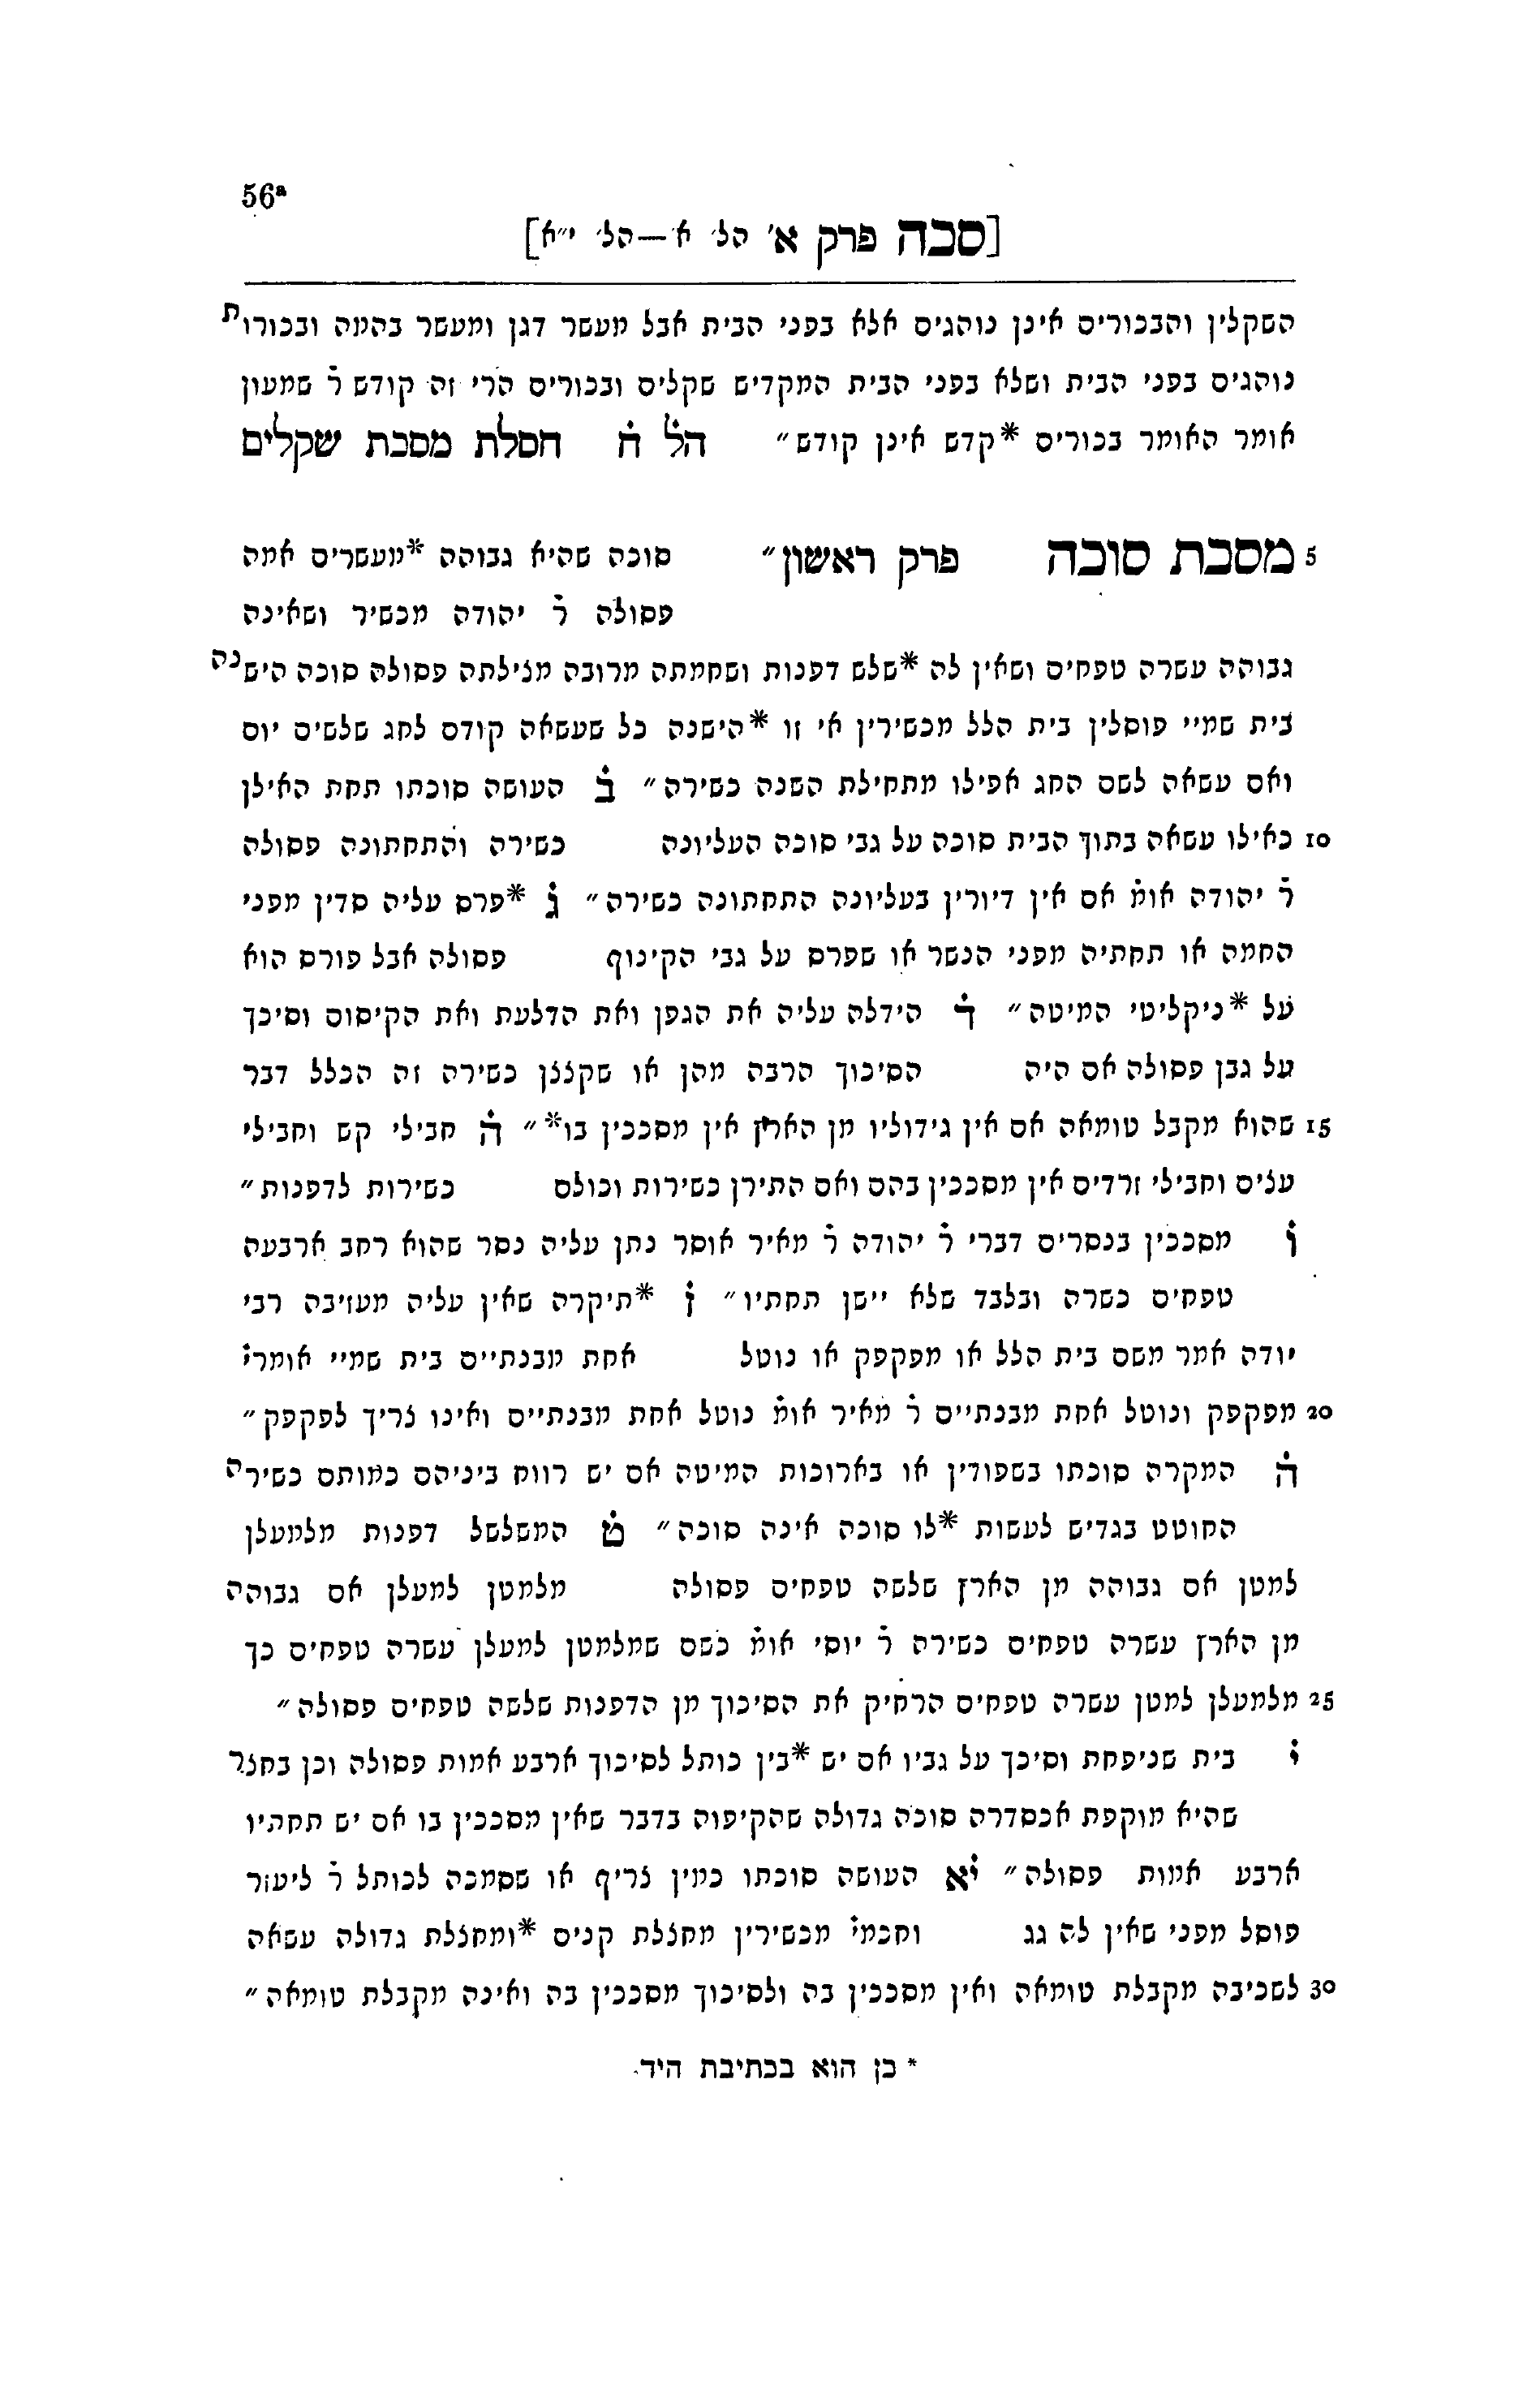 56ª
[סכה פרק א׳ הל׳ א׳—הל׳ י״א]
השקלין והבכורים אינן נוהגים אלא בפני הבית אבל מעשר דגן ומעשר בהמה ובכורות
נוהגים בפני הבית ושלא בפני הבית המקדיש שקלים ובכורים הרי זה קודש ר̇ שמעון
אומר האומר בכורים *קדש אינן קודש״ הל̇ ח̇ חסלת מסכת שקלים
5 מסכת סוכה פרק ראשון״ סוכה שהיא גבוהה *מעשרים אמה
פסולה ר̇ יהודה מכשיר ושאינה
גבוהה עשרה טפחים ושאין לה *שלש דפנות ושחמתה מרובה מצילתה פסולה סוכה הישנה
בית שמיי פוסלין בית הלל מכשירין אי זו *הישנה כל שעשאה קודם לחג שלשים יום
ואם עשאה לשם החג אפילו מתחילת השנה כשירה״ ב̇ העושה סוכתו תחת האילן
10 כאילו עשאה בתוך הבית סוכה על גבי סוכה העליונה כשירה והתחתונה פסולה
ר̇ יהודה אומ̇ אם אין דיורין בעליונה התחתונה כשירה״ ג̇ *פרס עליה סדין מפני
החמה או תחתיה מפני הנשר או שפרס על גבי הקינוף פסולה אבל פורס הוא
על *ניקליטי המיטה״ ד̇ הידלה עליה את הגפן ואת הדלעת ואת הקיסום וסיכך
על גבן פסולה אם היה הסיכוך הרבה מהן או שקצצן כשירה זה הכלל דבר
15 שהוא מקבל טומאה אם אין גידוליו מן הארץ אין מסככין בו*״ ה̇ חבילי קש וחבילי
עצים וחבילי זרדים אין מסככין בהם ואם התירן כשירות וכולם כשירות לדפנות״
ו̇ מסככין בנסרים דברי ר̇ יהודה ר̇ מאיר אוסר נתן עליה נסר שהוא רחב ארבעה
טפחים כשרה ובלבד שלא יישן תחתיו״ ז̇ *תיקרה שאין עליה מעזיבה רבי
יודה אמר משם בית הלל או מפקפק או נוטל אחת מבנתיים בית שמיי אומרי̇
20 מפקפק ונוטל אחת מבנתיים ר̇ מאיר אומ̇ נוטל אחת מבנתיים ואינו צריך לפקפק״
ח̇ המקרה סוכתו בשפודין או בארוכות המיטה אם יש רווח ביניהם כמותם כשירה
החוטט בגדיש לעשות *לו סוכה אינה סוכה״ ט̇ המשלשל דפנות מלמעלן
למטן אם גבוהה מן הארץ שלשה טפחים פסולה מלמטן למעלן אם גבוהה
מן הארץ עשרה טפחים כשירה ר̇ יוסי אומ̇ כשם שמלמטן למעלן עשרה טפחים כך
25 מלמעלן למטן עשרה טפחים הרחיק את הסיכוך מן הדפנות שלשה טפחים פסולה״
י̇ בית שניפחת וסיכך על גביו אם יש *בין כותל לסיכוך ארבע אמות פסולה וכן בחצר
שהיא מוקפת אכסדרה סוכה גדולה שהקיפוה בדבר שאין מסככין בו אם יש תחתיו
ארבע אמות פסולה״ י̇א העושה סוכתו כמין צריף או שסמכה לכותל ר̇ ליעזר
פוסל מפני שאין לה גג וחכמי̇ מכשירין מחצלת קנים *ומחצלת גדולה עשאה
30 לשכיבה מקבלת טומאה ואין מסככין בה ולסיכוך מסככין בה ואינה מקבלת טומאה״
* כן הוא בכתיבת היד.